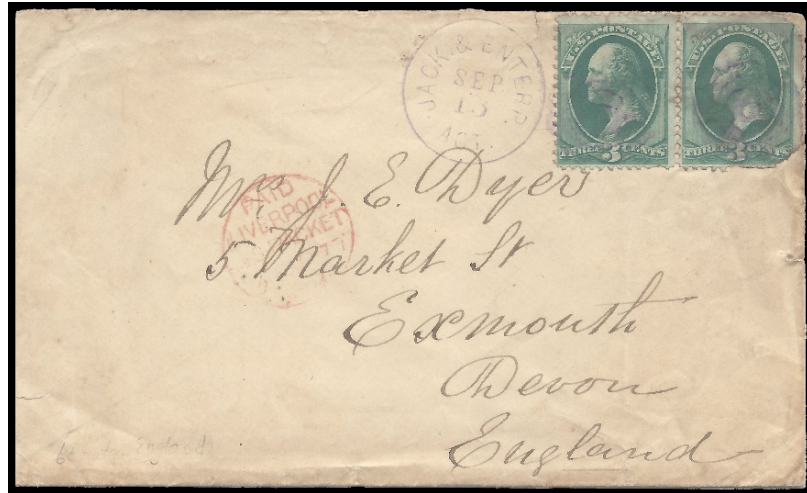 JACK. & ENTERP.
SEP
13
AGT.
U.S. POSTAGE
THREE 3 CENTS
U.S. POSTAGE
THREE 3 CENTS
PAID
LIVERPOOL
PACKET
77
Mrs J. E. Dyer
5 Market St
Exmouth
Devon
England
England